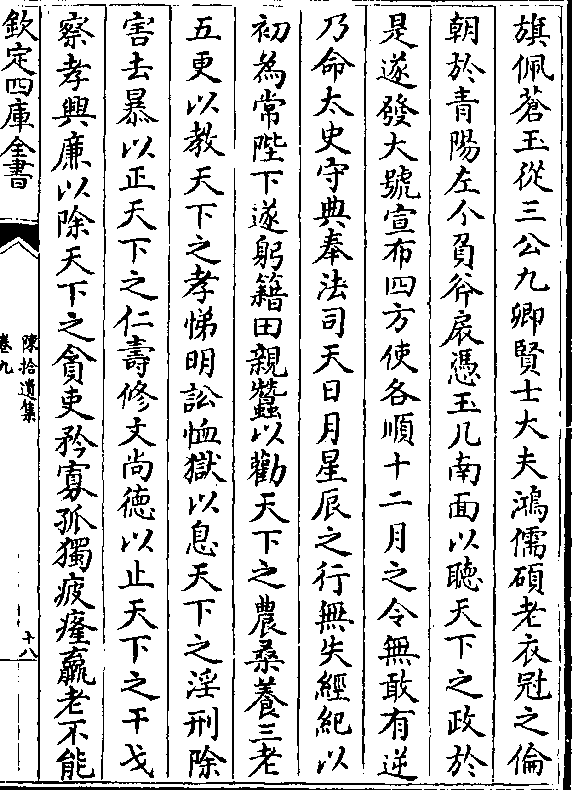 旗佩蒼玉從三公九卿賢士大夫鴻儒碩老衣冠之倫
朝於青陽左个負斧扆憑玉几南面以聽天下之政於
是遂發大號宣布四方使各順十二月之令無敢有逆
乃命太史守典奉法司天日月星辰之行無失經紀以
初為常陛下遂躬籍田親蠶以勸天下之農桑養三老
五更以教天下之孝悌明訟恤獄以息天下之淫刑除
害去暴以正天下之仁壽修文尚德以止天下之干戈
察孝興廉以除天下之貪吏矜寡孤獨疲癃羸老不能
欽定四庫全書
陳拾遺集
卷九
十八